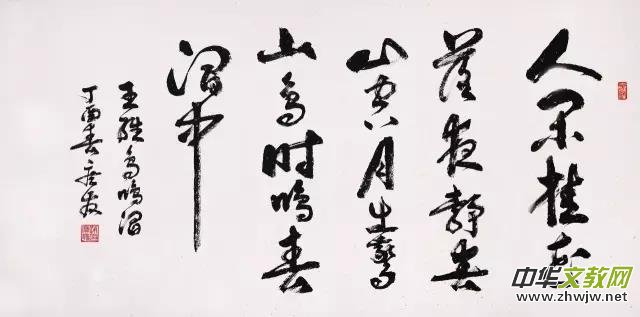 人闲桂花
落夜静春
山空月出驚
山鸟时鸣春
涧中
王维鸟鸣涧
丁酉春
中华文教网
www.zhwjw.net